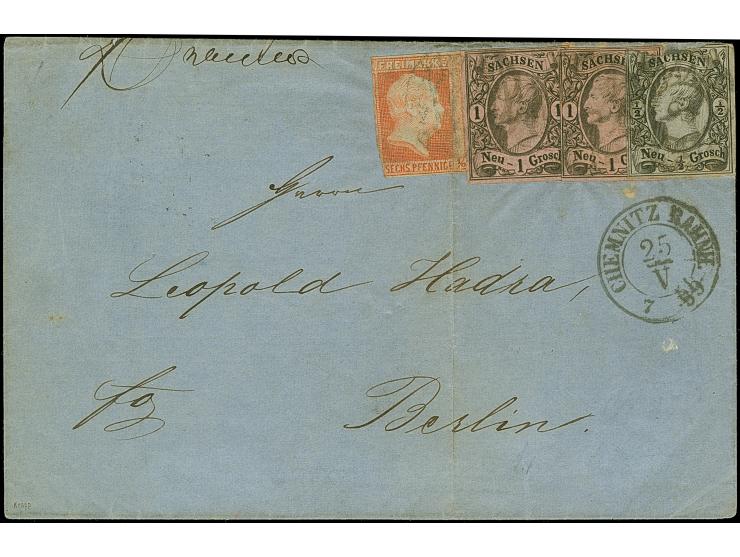 FREIMARKE
SECHS PFENNIGE ½
SACHSEN
1 1
Neu - 1 Grosch
SACHSEN
1
Neu - 1 Grosch
SACHSEN
½ ½
Neu - ½ Grosch
Herrn
CHEMNITZ BAHNH
25
V
7
Leopold Hadra,
fr
Berlin.